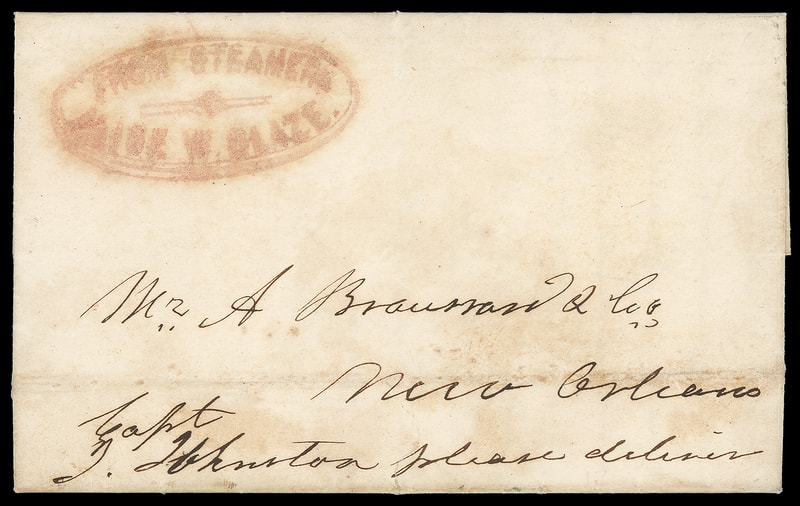 FROM STEAMER
W. BLAZE.
Mr. A Broussard & Co
New Orleans
Capt
J. Johnston please deliver